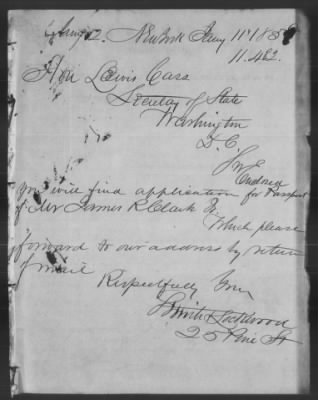 New York Jany 11th 185
11.482.
Hon Lewis Cass
Secretay of State
Washington
D. C.
Sir
Enclosed
You will find application for Passport
of Mr James R Clark Jr. Which please
forward to our address by return
of mail
Respectfully Yours
Smith & Lockwood
25 Pine St